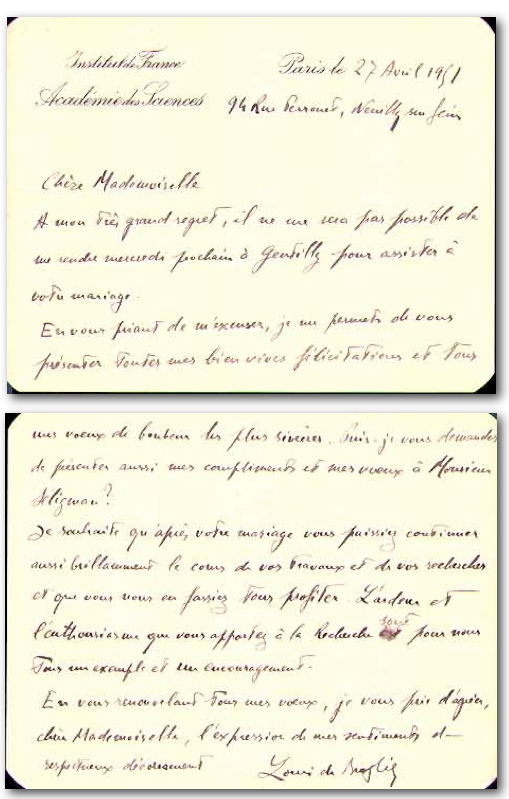 Institut de France
Paris le 27 Avril 1951
Académie des Sciences
94 Rue Perronet, Neuilly sur Seine
Chère Mademoiselle
A mon très grand regret, il ne me sera pas possible de
me rendre mercredi prochain à Gentilly pour assister à
votre mariage.
En vous priant de m'excuser, je me permets de vous
présenter toutes mes bien vives félicitations et tous
mes voeux de bonheur les plus sincères. Puis-je vous demander
de présenter aussi mes compliments et mes voeux à Monsieur
Seligman?
Je souhaite qu'après votre mariage vous puissiez continuer
aussi brillamment le cours de vos travaux et de vos recherches
et que vous nous en fassiez tous profiter. L'ardeur et
l'enthousiasme que vous apportez à la Recherche sont pour nous
tous un exemple et un encouragement.
En vous renouvelant tous mes voeux, je vous prie d'agréer,
chère Mademoiselle, l'expression de mes sentiments
respectueux
Louis de Broglie